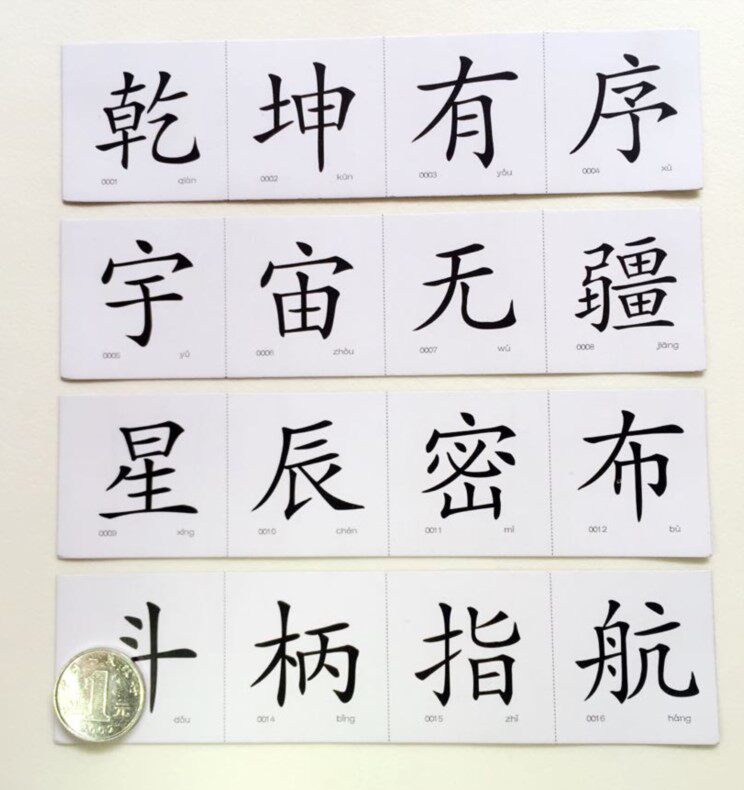 乾 坤 有 序
0001 qián 0002 kūn 0003 yǒu 0004 xù
宇 宙 无 疆
0005 yǔ 0006 zhòu 0007 wú 0008 jiāng
星 辰 密 布
0009 xīng 0010 chén 0011 mì 0012 bù
斗 柄 指 航
dǒu 0014 bǐng 0015 zhǐ 0016 háng
1
元